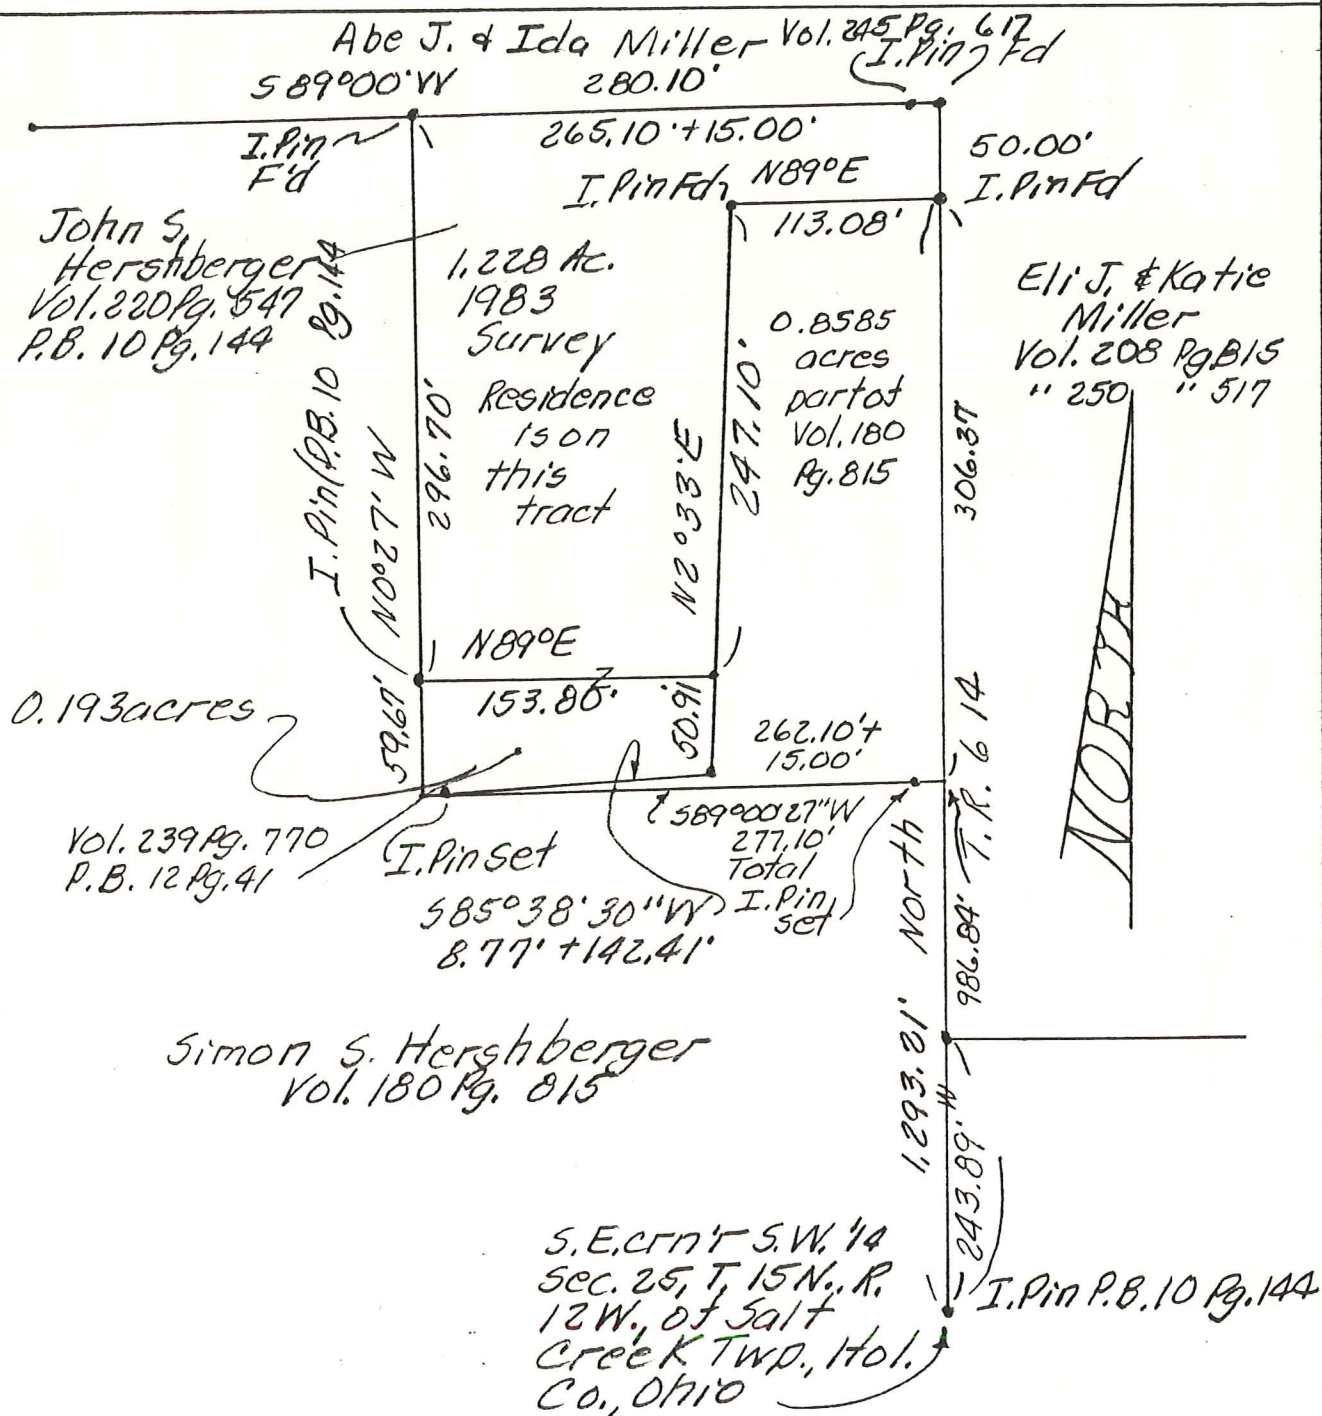 Abe J. & Ida Miller Vol. 245 Pg. 617
I.Pin Fd
S89°00'W 280.10'
265.10'+15.00'
I.Pin
F'd
50.00'
I.Pin Fd
I.Pin Fd
N89°E
113.08'
John S.
Hershberger
Vol.220 Pg. 547
P.B. 10 Pg. 144
1.228 Ac.
1983
Survey
Residence
is on
this
tract
0.8585
acres
part of
Vol.180
Pg.815
Eli J. & Katie
Miller
Vol. 208 Pg 815
" 250 " 517
I.Pin (P.B. 10 Pg.144
N0°27'W
296.70'
N2°33'E
247.10'
306.37
NORTH
N89°E
153.86'
0.193acres
59.67'
50.91'
262.10'+
15.00'
T.R. 614
Vol. 239 Pg. 770
P.B. 12 Pg.41
I.Pin set
S89°00'27"W
277.10'
Total
I.Pin
set
S85°38'30"W
8.77' + 142.41'
North
986.84'
1,293.21'
243.89'
Simon S. Hershberger
Vol. 180 Pg. 815
S.E.crn'r S.W. 1/4
Sec. 25, T. 15N., R.
12W., of Salt
Creek Twp., Hol.
Co., Ohio
I.Pin P.B.10 Pg.144